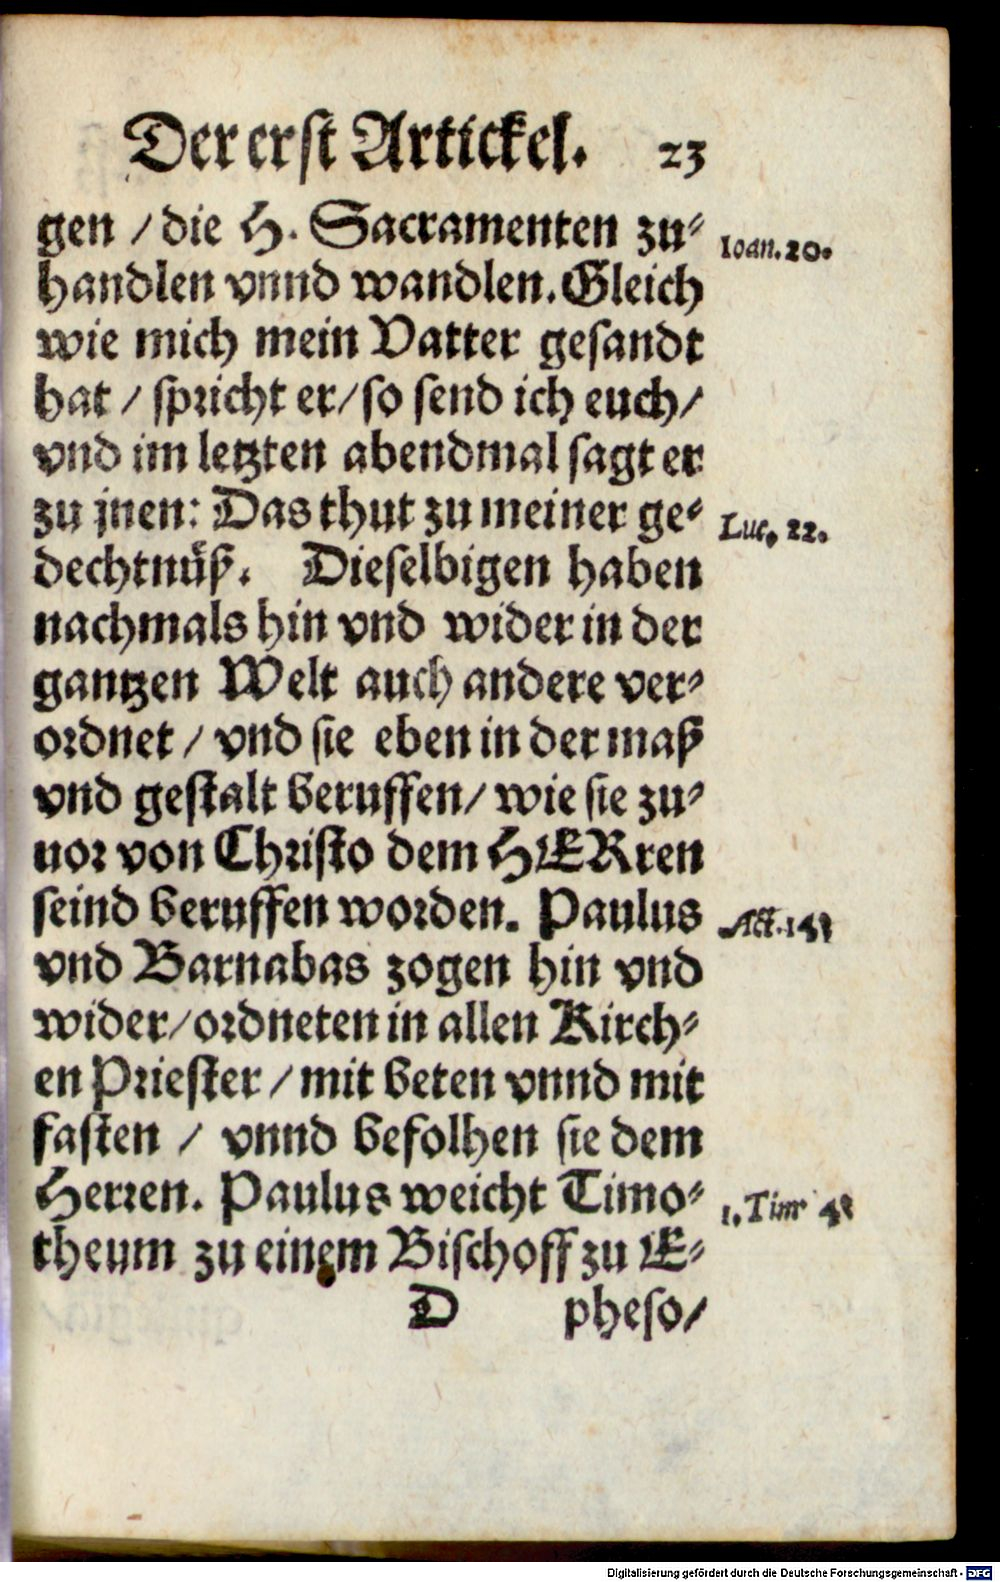 Der erst Artickel. 23
gen / die H. Sacramenten zu-
Ioan. 20.
handlen vnnd wandlen. Gleich
wie mich mein Vatter gesandt
hat / spricht er / so send ich euch /
vnd im letzten abendmal sagt er
zu jnen: Das thut zu meiner ge-
Luc. 22.
dechtnüß. Dieselbigen haben
nachmals hin vnd wider in der
gantzen Welt auch andere ver-
ordnet / vnd sie eben in der maß
vnd gestalt beruffen / wie sie zu-
uor von Christo dem HERren
seind beruffen worden. Paulus
Act. 14
vnd Barnabas zogen hin vnd
wider / ordneten in allen Kirch-
en Priester / mit beten vnnd mit
fasten / vnnd befolhen sie dem
Herren. Paulus weicht Timo-
1. Tim 4
theum zu einem Bischoff zu E-
D pheso /
Digitalisierung gefördert durch die Deutsche Forschungsgemeinschaft - DFG